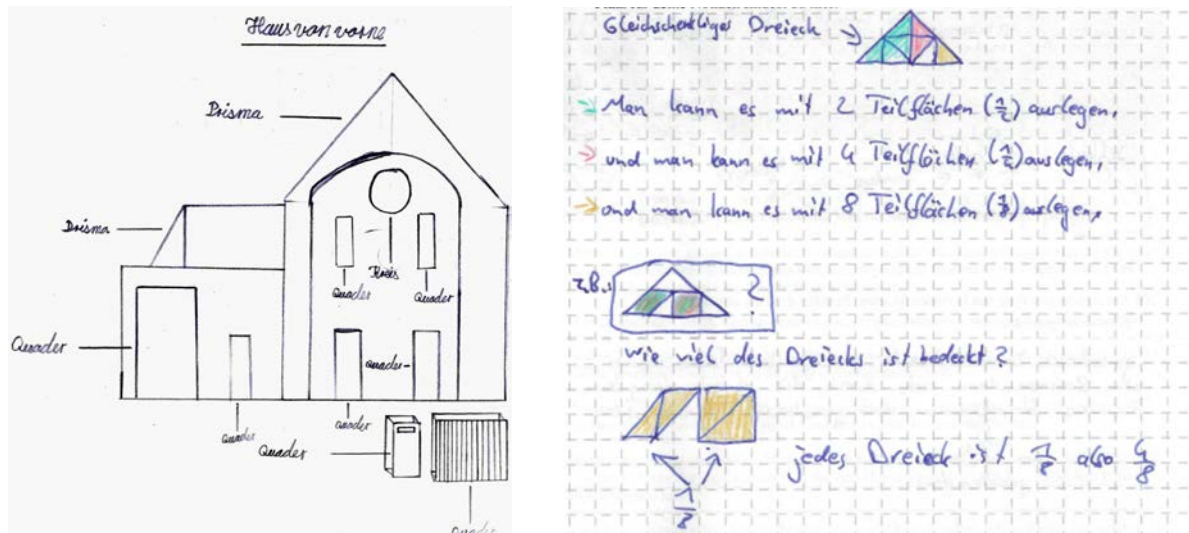 Haus von vorne
Prisma
Prisma
Kreis
Quader
Quader
Quader
Quader
Quader
Quader
Quader
Quader
Gleichschenkliges Dreieck
Man kann es mit 2 Teilflächen (1/2) auslegen,
und man kann es mit 4 Teilflächen
auslegen,
und man kann es mit 8 Teilflächen (1/8) auslegen,
z.B.:
?
Wie viel des Dreiecks ist bedeckt?
jedes Dreieck ist 1/8 also 4/8
1/8